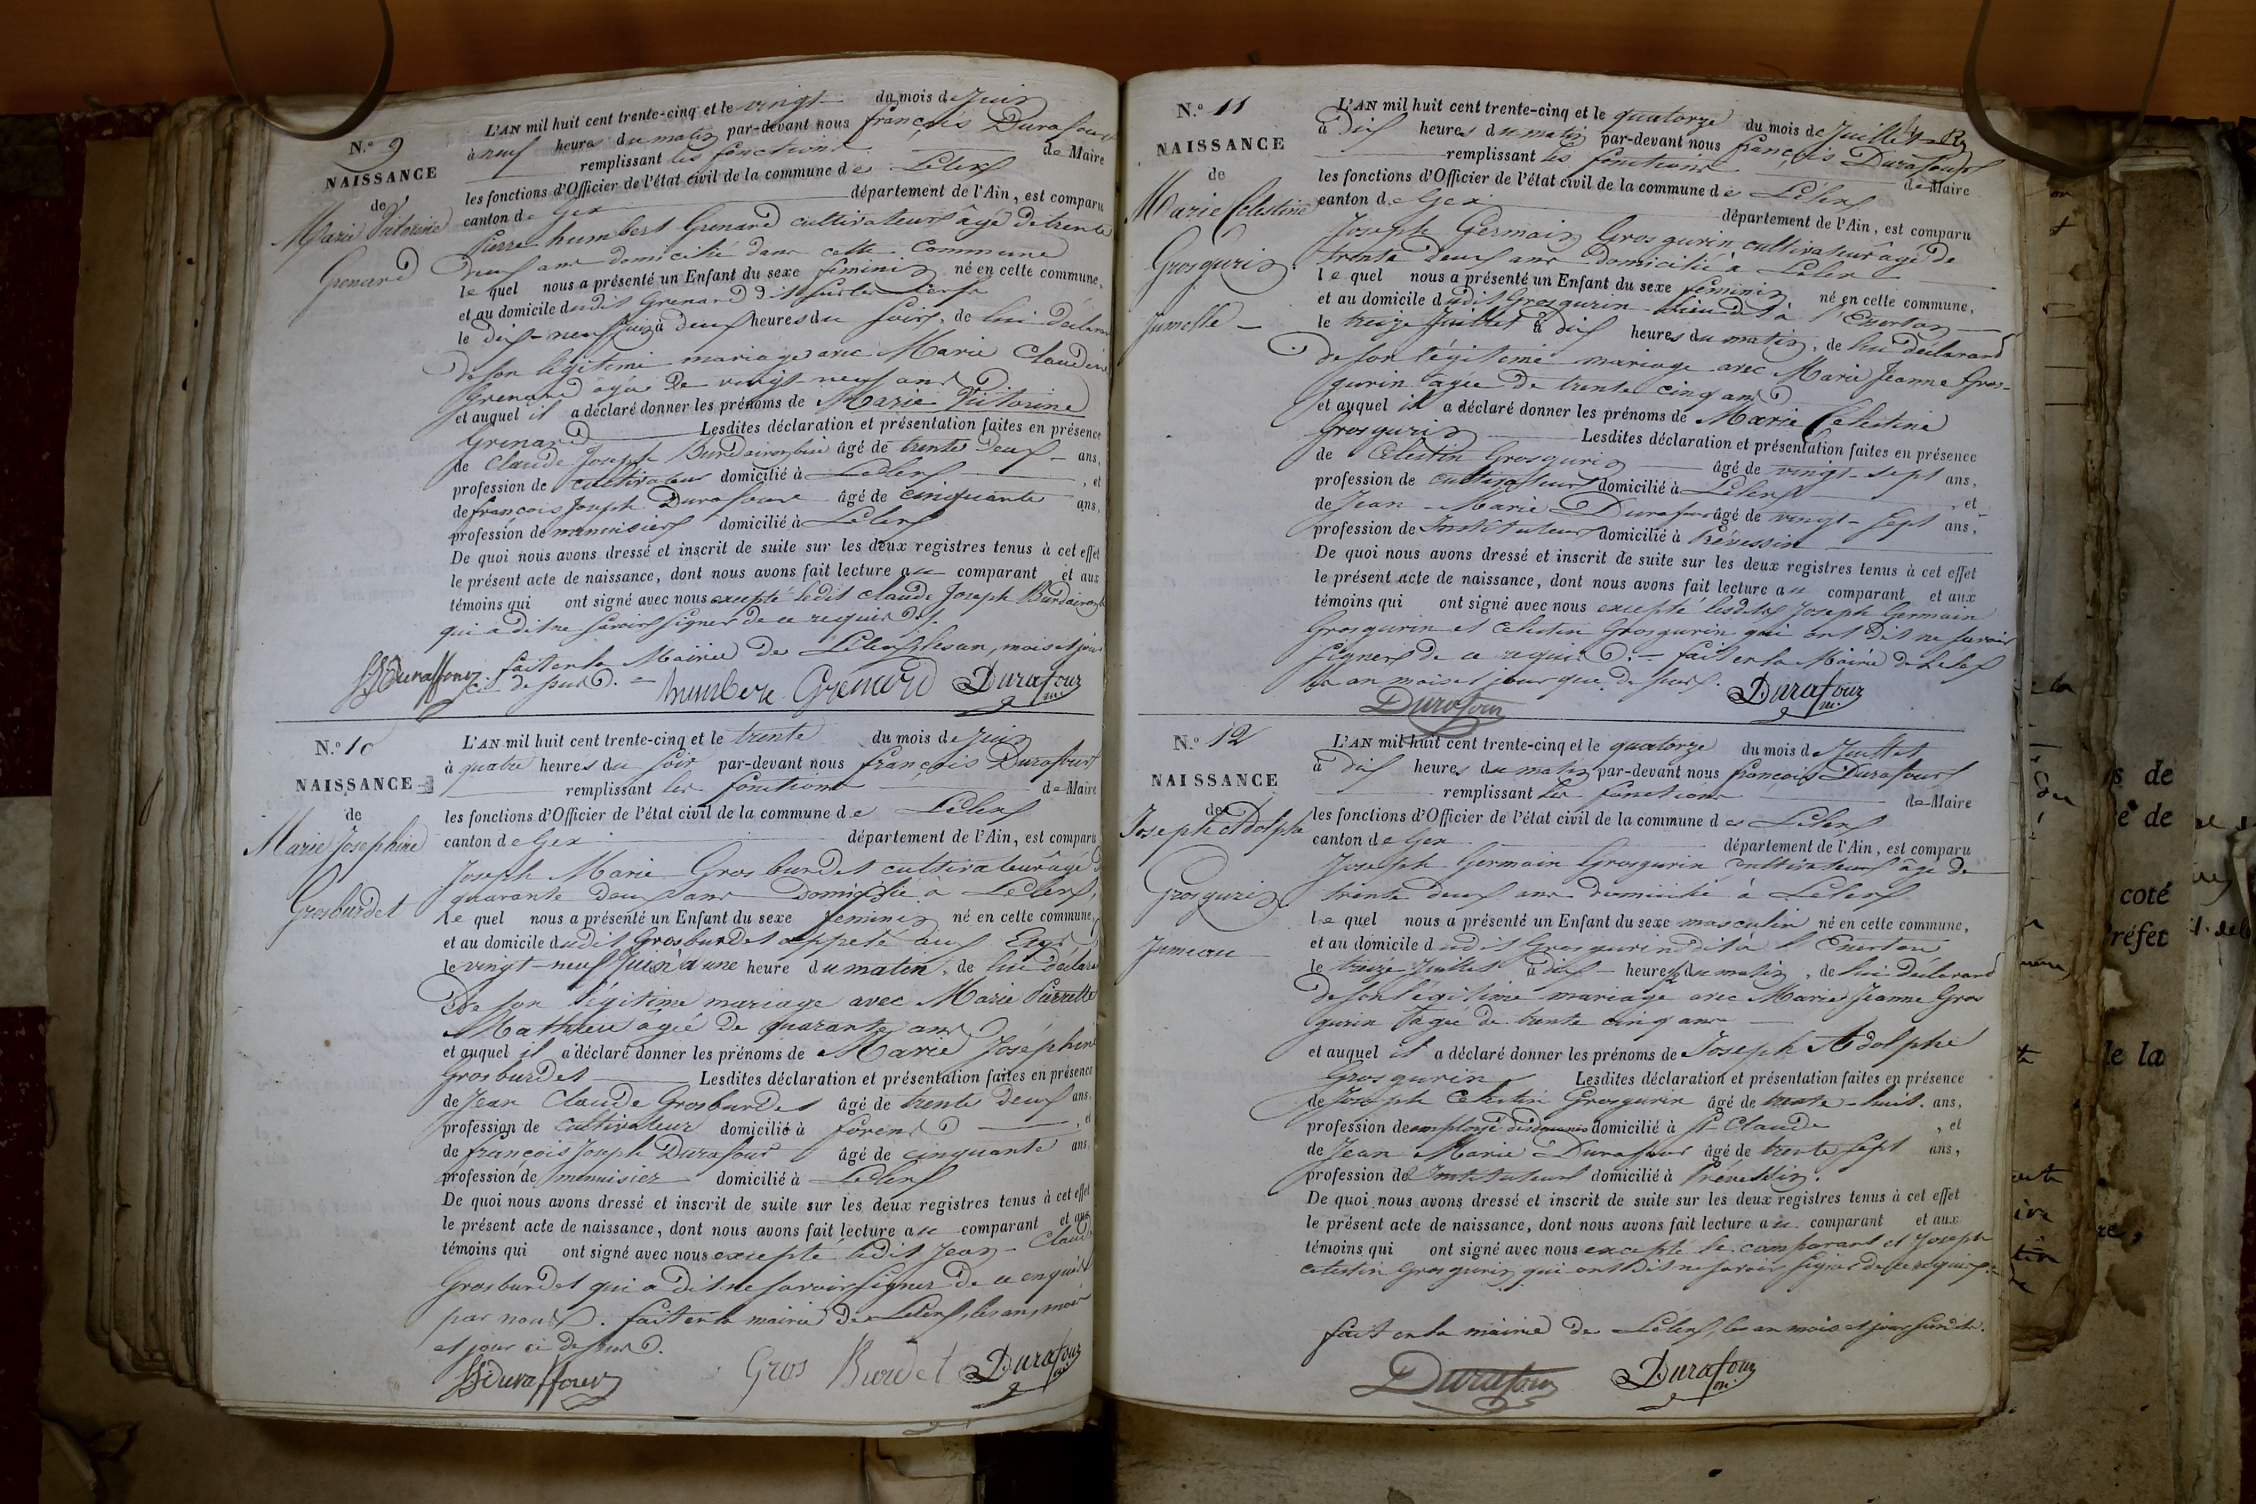 N.° 9
NAISSANCE
de
Marie Vitorine
Grenard
L'AN mil huit cent trente-cinq et le vingt du mois de Juin
à neuf heures du matin par-devant nous françois Durafour
remplissant les fonctions de Maire
les fonctions d'Officier de l'état civil de la commune de Lelex
canton de Gex département de l'Ain, est comparu
Pierre humbert Grenard cultivateur âgé de trente
deux ans domicilié dans cette Commune
le quel nous a présenté un Enfant du sexe feminin né en cette commune,
et au domicile dudit Grenard dit sur les
le dix-neuf Juin à deux heures du soir, de lui déclarant
de son légitime mariage avec Marie Claudine
Grenard âgée de vingt-neuf ans
et auquel il a déclaré donner les prénoms de Marie Vitorine
Grenard Lesdites déclaration et présentation faites en présence
de Claude Joseph âgé de trente deux ans,
profession de cultivateur domicilié à Lelex, et
de françois Joseph Durafour âgé de cinquante ans,
profession de menuisier domicilié à Lelex
De quoi nous avons dressé et inscrit de suite sur les deux registres tenus à cet effet
le présent acte de naissance, dont nous avons fait lecture au comparant et aux
témoins qui ont signé avec nous excepté ledit Claude Joseph
qui a dit ne savoir signer de ce requis
fait en la Mairie de Lelex les an, mois et jour
JJDuraffourg ci dessus. humbert Grenard Durafour m.
N.° 10
NAISSANCE
de
Marie Josephine
Grosburdet
L'AN mil huit cent trente-cinq et le trente du mois de Juin
à quatre heures du soir par-devant nous françois Durafour
remplissant les fonctions de Maire
les fonctions d'Officier de l'état civil de la commune de Lelex
canton de Gex département de l'Ain, est comparu
Joseph Marie Grosburdet cultivateur âgé de
quarante deux ans domicilié à Lelex,
le quel nous a présenté un Enfant du sexe feminin né en cette commune,
et au domicile dudit Grosburdet appelé aux
le vingt-neuf Juin à une heure du matin, de lui déclarant
De son légitime mariage avec Marie Pierrette
Mathieu âgée de quarante ans
et auquel il a déclaré donner les prénoms de Marie Joséphine
Grosburdet Lesdites déclaration et présentation faites en présence
de Jean Claude Grosburdet âgé de trente deux ans,
profession de cultivateur domicilié à forens, et
de françois Joseph Durafour âgé de cinquante ans,
profession de menuisier domicilié à Lelex
De quoi nous avons dressé et inscrit de suite sur les deux registres tenus à cet effet
le présent acte de naissance, dont nous avons fait lecture au comparant et aux
témoins qui ont signé avec nous excepté ledit Jean-Claude
Grosburdet qui a dit ne savoir signer de ce enquis
par nous. fait en la mairie de Lelex, les an, mois
et jour ci dessus.
JJDuraffourg Gros Burdet Durafour m.
N.° 11
NAISSANCE
de
Marie Celestine
Grosgurin
jumelle
L'AN mil huit cent trente-cinq et le quatorze du mois de Juillet
à dix heures du matin par-devant nous françois Durafour
remplissant les fonctions de Maire
les fonctions d'Officier de l'état civil de la commune de Lelex
canton de Gex département de l'Ain, est comparu
Joseph Germain Grosgurin cultivateur âgé de
trente deux ans domicilié à Lelex
le quel nous a présenté un Enfant du sexe feminin né en cette commune,
et au domicile dudit Grosgurin lieu dit à
le treize Juillet à dix heures du matin, de lui déclarant
de son légitime mariage avec Marie Jeanne Gros-
gurin âgée de trente cinq ans
et auquel il a déclaré donner les prénoms de Marie Celestine
Grosgurin Lesdites déclaration et présentation faites en présence
de Celestin Grosgurin âgé de vingt-sept ans,
profession de cultivateur domicilié à Lelex et
de Jean-Marie Durafour âgé de vingt-sept ans,
profession de Instituteur domicilié à Prévessin
De quoi nous avons dressé et inscrit de suite sur les deux registres tenus à cet effet
le présent acte de naissance, dont nous avons fait lecture au comparant et aux
témoins qui ont signé avec nous excepté lesdits Joseph Germain
Grosgurin et Celestin Grosgurin qui ont dit ne savoir
signer de ce requis. fait en la Mairie de Lelex
les an mois et jour que dessus.
Durafour Durafour m.
N.° 12
NAISSANCE
de
Joseph Adolphe
Grosgurin
jumeau
L'AN mil huit cent trente-cinq et le quatorze du mois de Juillet
à dix heures du matin par-devant nous françois Durafour
remplissant les fonctions de Maire
les fonctions d'Officier de l'état civil de la commune de Lelex
canton de Gex département de l'Ain, est comparu
Joseph Germain Grosgurin cultivateur âgé de
trente deux ans domicilié à Lelex
le quel nous a présenté un Enfant du sexe masculin né en cette commune,
et au domicile dudit Grosgurin dit à
le treize Juillet à dix heures du matin, de lui déclarant
de son légitime mariage avec Marie Jeanne Gros
gurin âgée de trente cinq ans
et auquel il a déclaré donner les prénoms de Joseph Adolphe
Grosgurin Lesdites déclaration et présentation faites en présence
de Joseph Celestin Grosgurin âgé de trente-huit ans,
profession de employé des douanes domicilié à St Claude, et
de Jean Marie Durafour âgé de trente sept ans,
profession de Instituteur domicilié à Prévessin.
De quoi nous avons dressé et inscrit de suite sur les deux registres tenus à cet effet
le présent acte de naissance, dont nous avons fait lecture au comparant et aux
témoins qui ont signé avec nous excepté le comparant et Joseph
Celestin Grosgurin qui ont dit ne savoir signer de ce requis
fait en la mairie de Lelex, les an mois et jour susdits.
Durafour Durafour m.